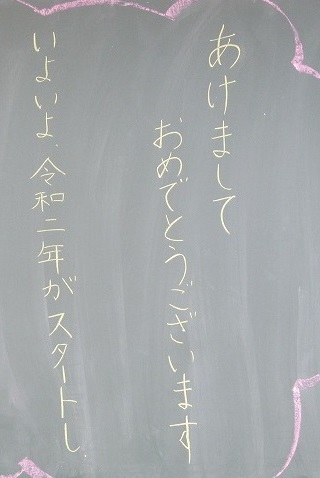 あけまして
おめでとうございます
いよいよ、令和二年がスタートし、